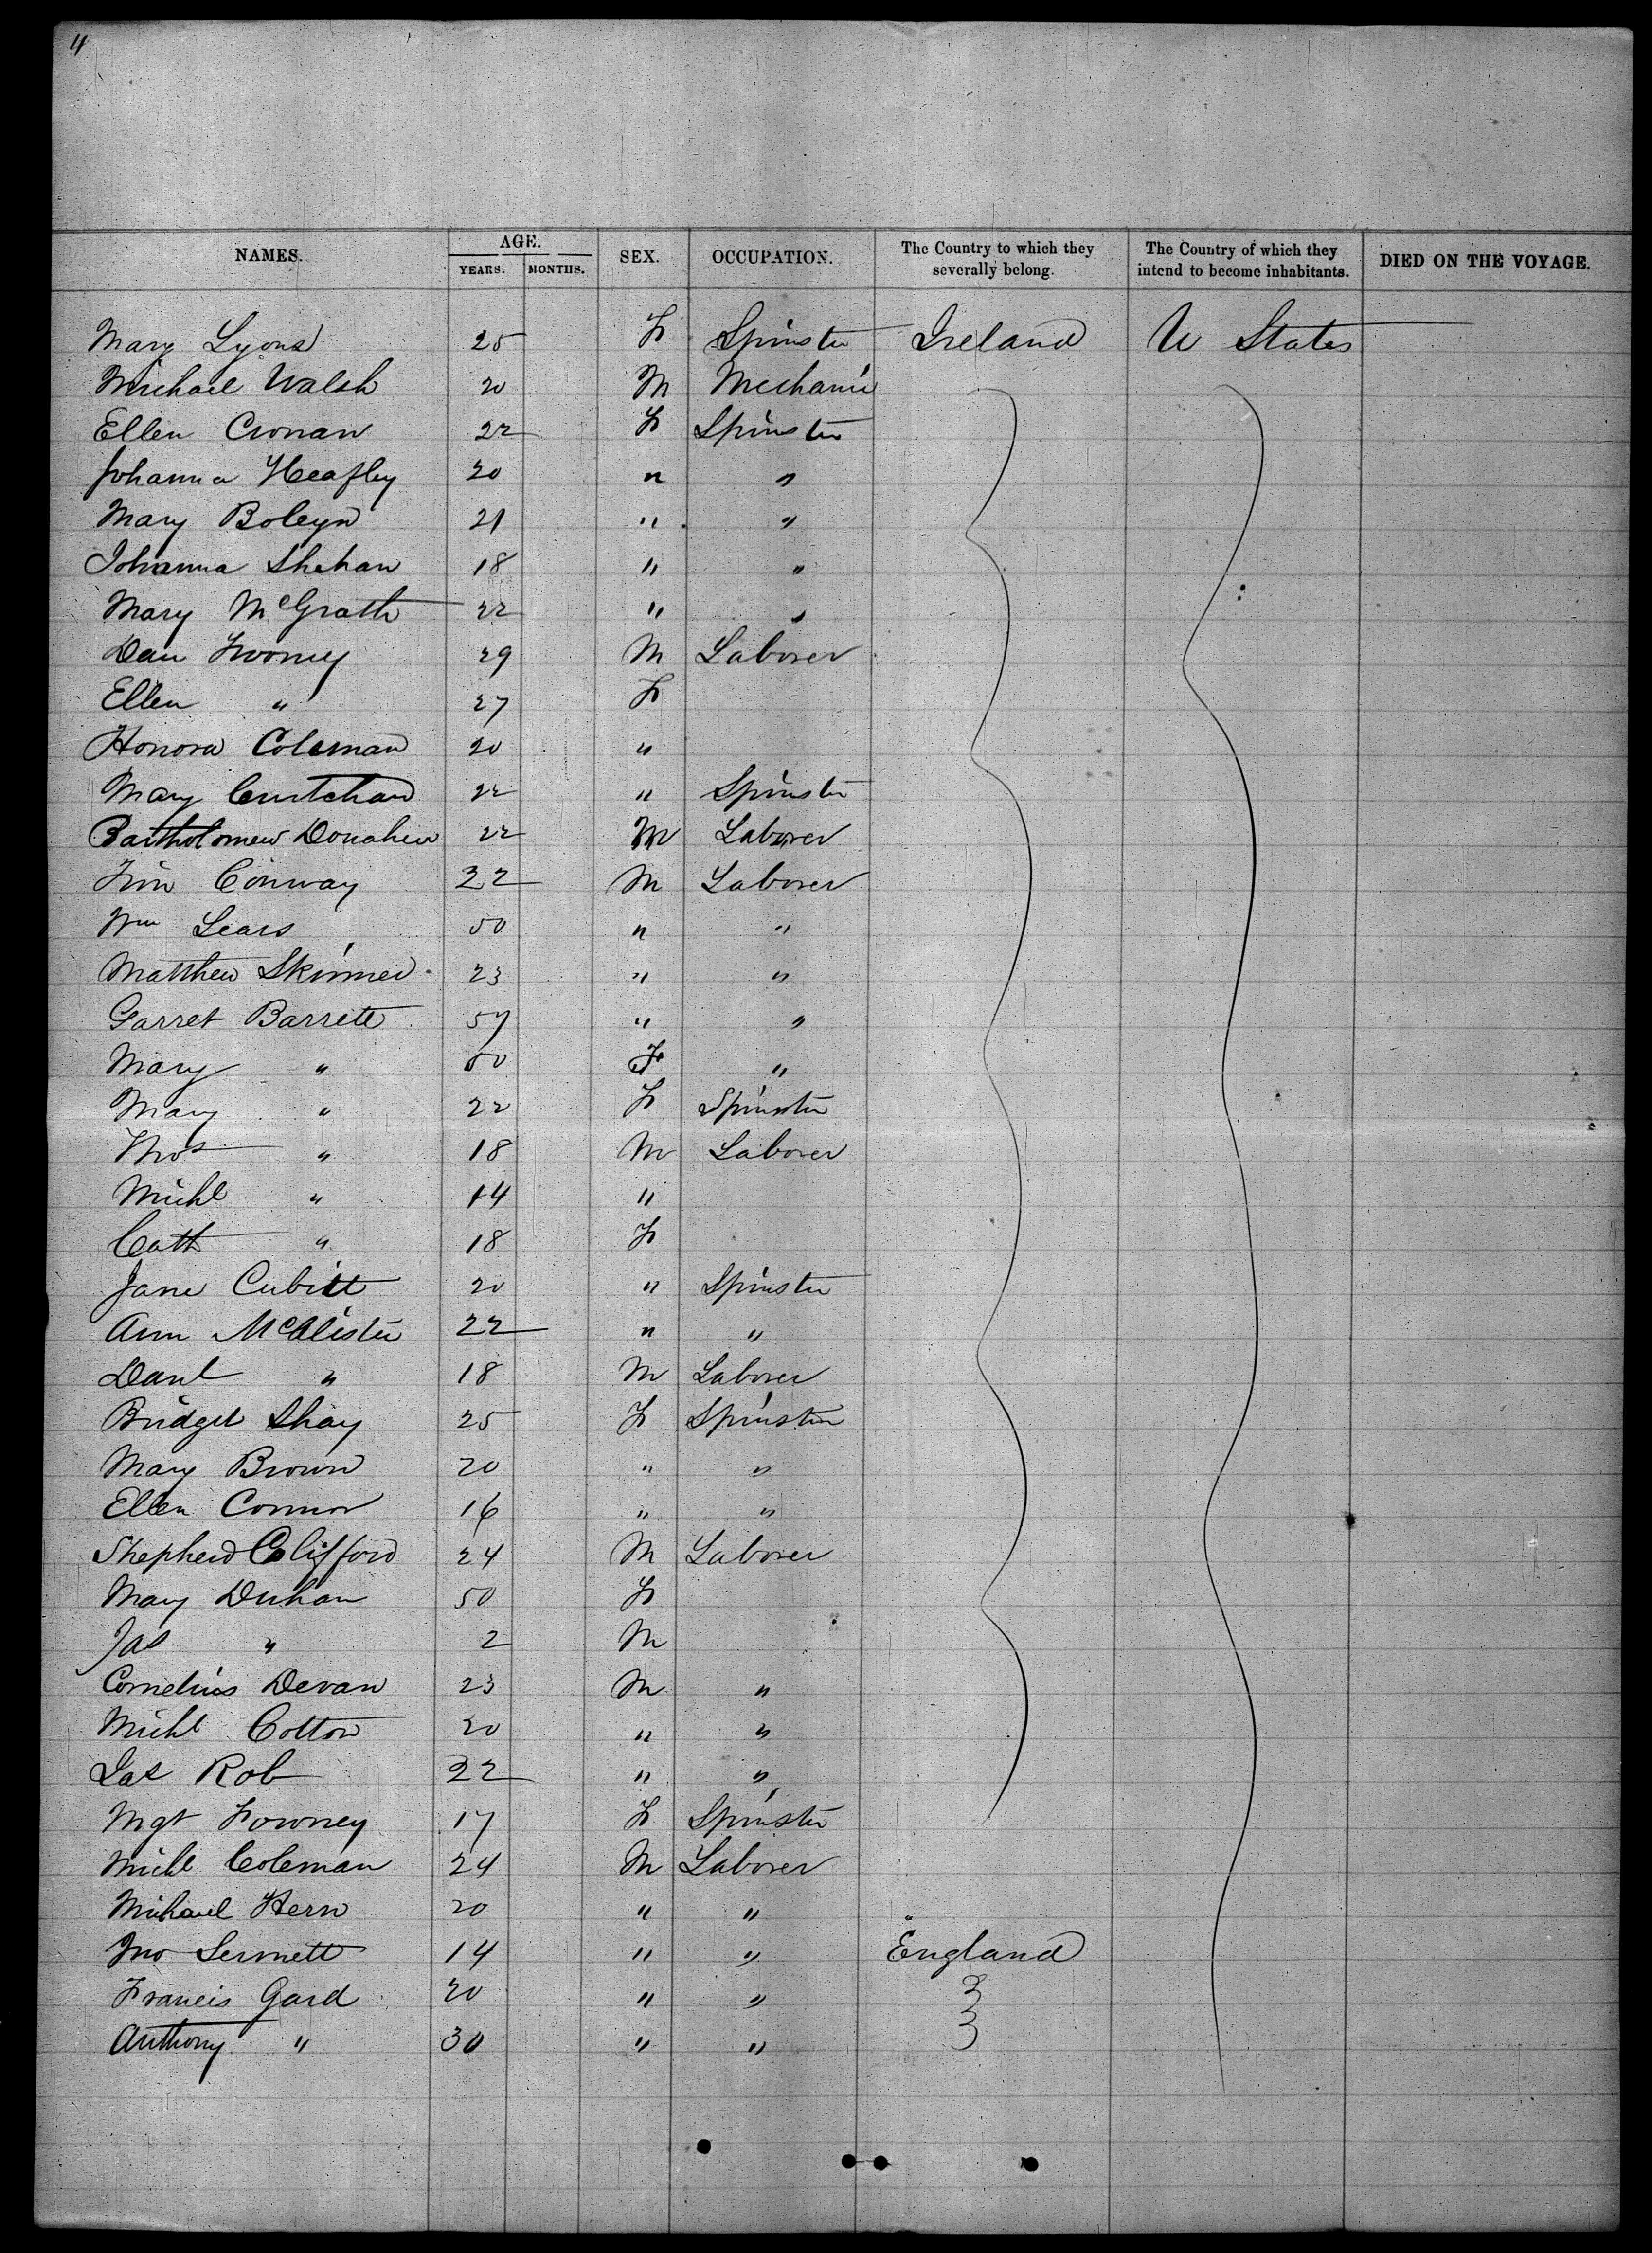 4
NAMES. AGE. SEX. OCCUPATION. The Country to which they severally belong. The Country of which they intend to become inhabitants. DIED ON THE VOYAGE.
YEARS. MONTHS.
Mary Lyons 25 F Spinster Ireland U States
Michael Walsh 20 M Mechanic
Ellen Cronan 22 F Spinster
Johanna Heafley 20 " "
Mary Boleyn 21 " "
Johanna Shehan 18 " "
Mary McGrath 22 " "
Dan Twomey 29 M Laborer
Ellen " 27 F
Honora Coleman 20 "
Mary 22 " Spinster
Bartholomew Donahue 22 M Laborer
Tim Conway 22 M Laborer
Wm Sears 50 " "
Matthew Skinner 23 " "
Garret Barrett 57 " "
Mary " 50 F "
Mary " 22 F Spinster
Thos " 18 M Laborer
Michl " 14 "
Cath " 18 F
Jane Cubitt 20 " Spinster
Ann McAlister 22 " "
Danl " 18 M Laborer
Bridget Shay 25 F Spinster
Mary Brown 20 " "
Ellen Connor 16 " "
Shepherd Clifford 24 M Laborer
Mary Duhan 50 F
Jas " 2 M
Cornelius Devan 23 M "
Michl Cotton 20 " "
Jas Rob 22 " "
Mgt 17 F Spinster
Michl Coleman 24 M Laborer
Michael Hern 20 " "
Jno Sermett 14 " " England
Francis Gard 20 " "
Anthony " 30 " "